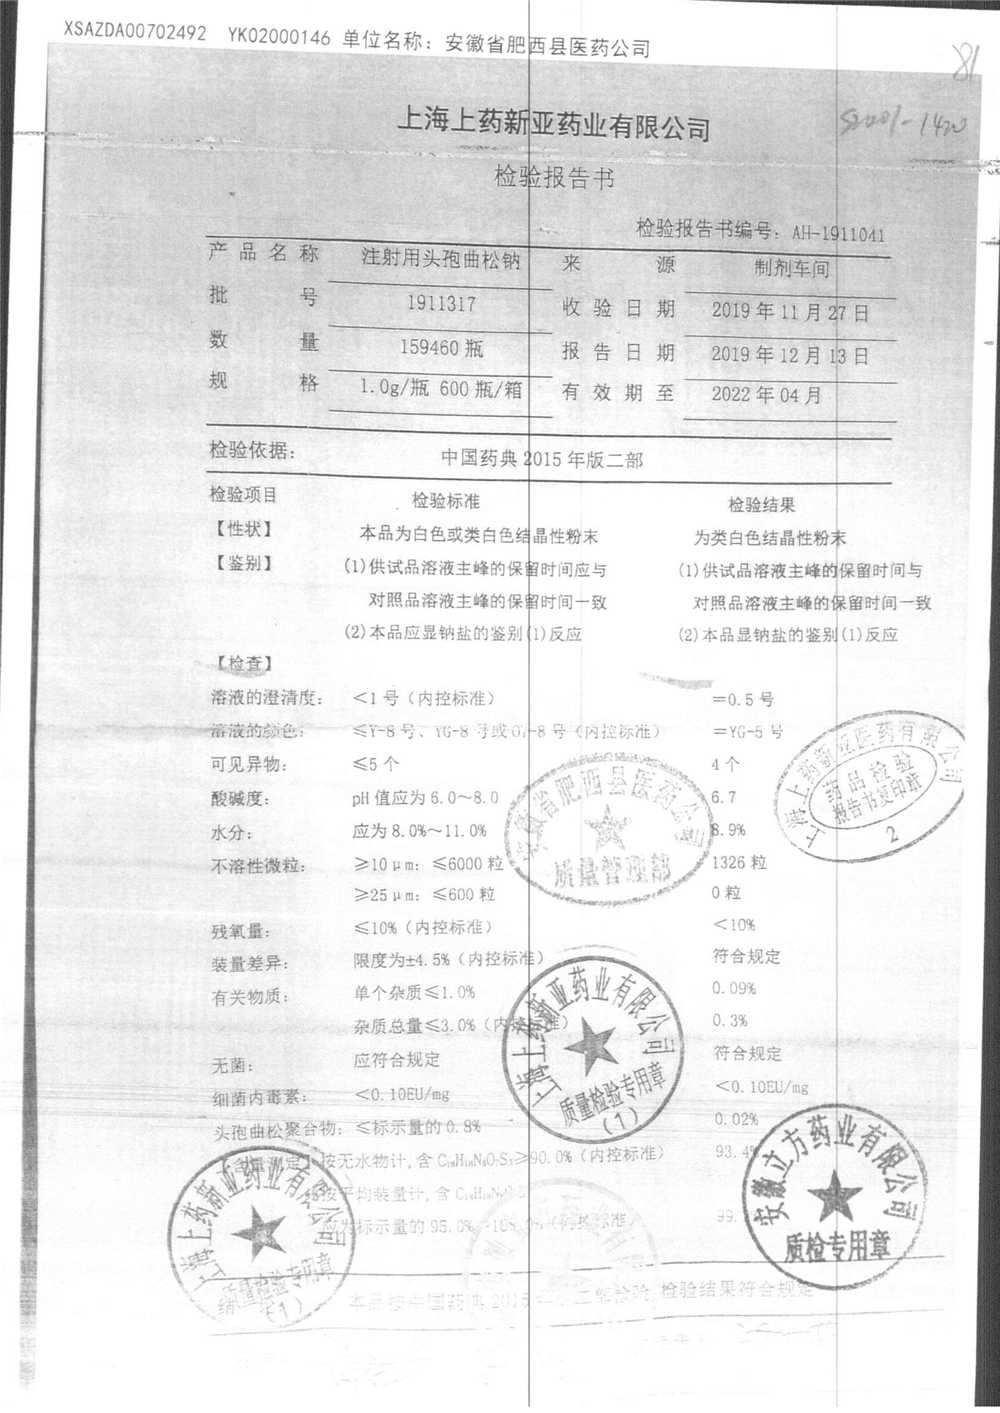 XSAZDA00702492 YK02000146 单位名称：安徽省肥西县医药公司
81
上海上药新亚药业有限公司
检验报告书
检验报告书编号：AH-1911041
产品名称 注射用头孢曲松钠 来源 制剂车间
批号 1911317 收验日期 2019年11月27日
数量 159460瓶 报告日期 2019年12月13日
规格 1.0g/瓶 600瓶/箱 有效期至 2022年04月
检验依据： 中国药典2015年版二部
检验项目 检验标准 检验结果
【性状】 本品为白色或类白色结晶性粉末 为类白色结晶性粉末
【鉴别】 (1)供试品溶液主峰的保留时间应与 (1)供试品溶液主峰的保留时间与
对照品溶液主峰的保留时间一致 对照品溶液主峰的保留时间一致
(2)本品应显钠盐的鉴别(1)反应 (2)本品显钠盐的鉴别(1)反应
【检查】
溶液的澄清度： <1号（内控标准） =0.5号
溶液的颜色： ≤Y-8号、YG-8号或OY-8号（内控标准） =YG-5号
可见异物： ≤5个 4个
酸碱度： pH值应为6.0～8.0 6.7
水分： 应为8.0%～11.0% 8.9%
不溶性微粒： ≥10μm：≤6000粒 1326粒
≥25μm：≤600粒 0粒
残氧量： ≤10%（内控标准） <10%
装量差异： 限度为±4.5%（内控标准） 符合规定
有关物质： 单个杂质≤1.0% 0.09%
杂质总量≤3.0%（内控标准） 0.3%
无菌： 应符合规定 符合规定
细菌内毒素： <0.10EU/mg <0.10EU/mg
头孢曲松聚合物：≤标示量的0.8% 0.02%
【含量测定】按无水物计，含C₁₈H₁₈N₈O₇S₃≥90.0%（内控标准） 93.4%
按平均装量计，含
应为标示量的95.0% 99.
本品按中国药典2015年版二部检验，检验结果符合规定
上海上药新亚医药有限公司
药品检验
报告书复印章
2
安徽省肥西县医药公司
质量管理部
上海上药新亚药业有限公司
质量检验专用章
(1)
安徽立方药业有限公司
质检专用章
上海上药新亚药业有限公司
质量检验专用章
(1)